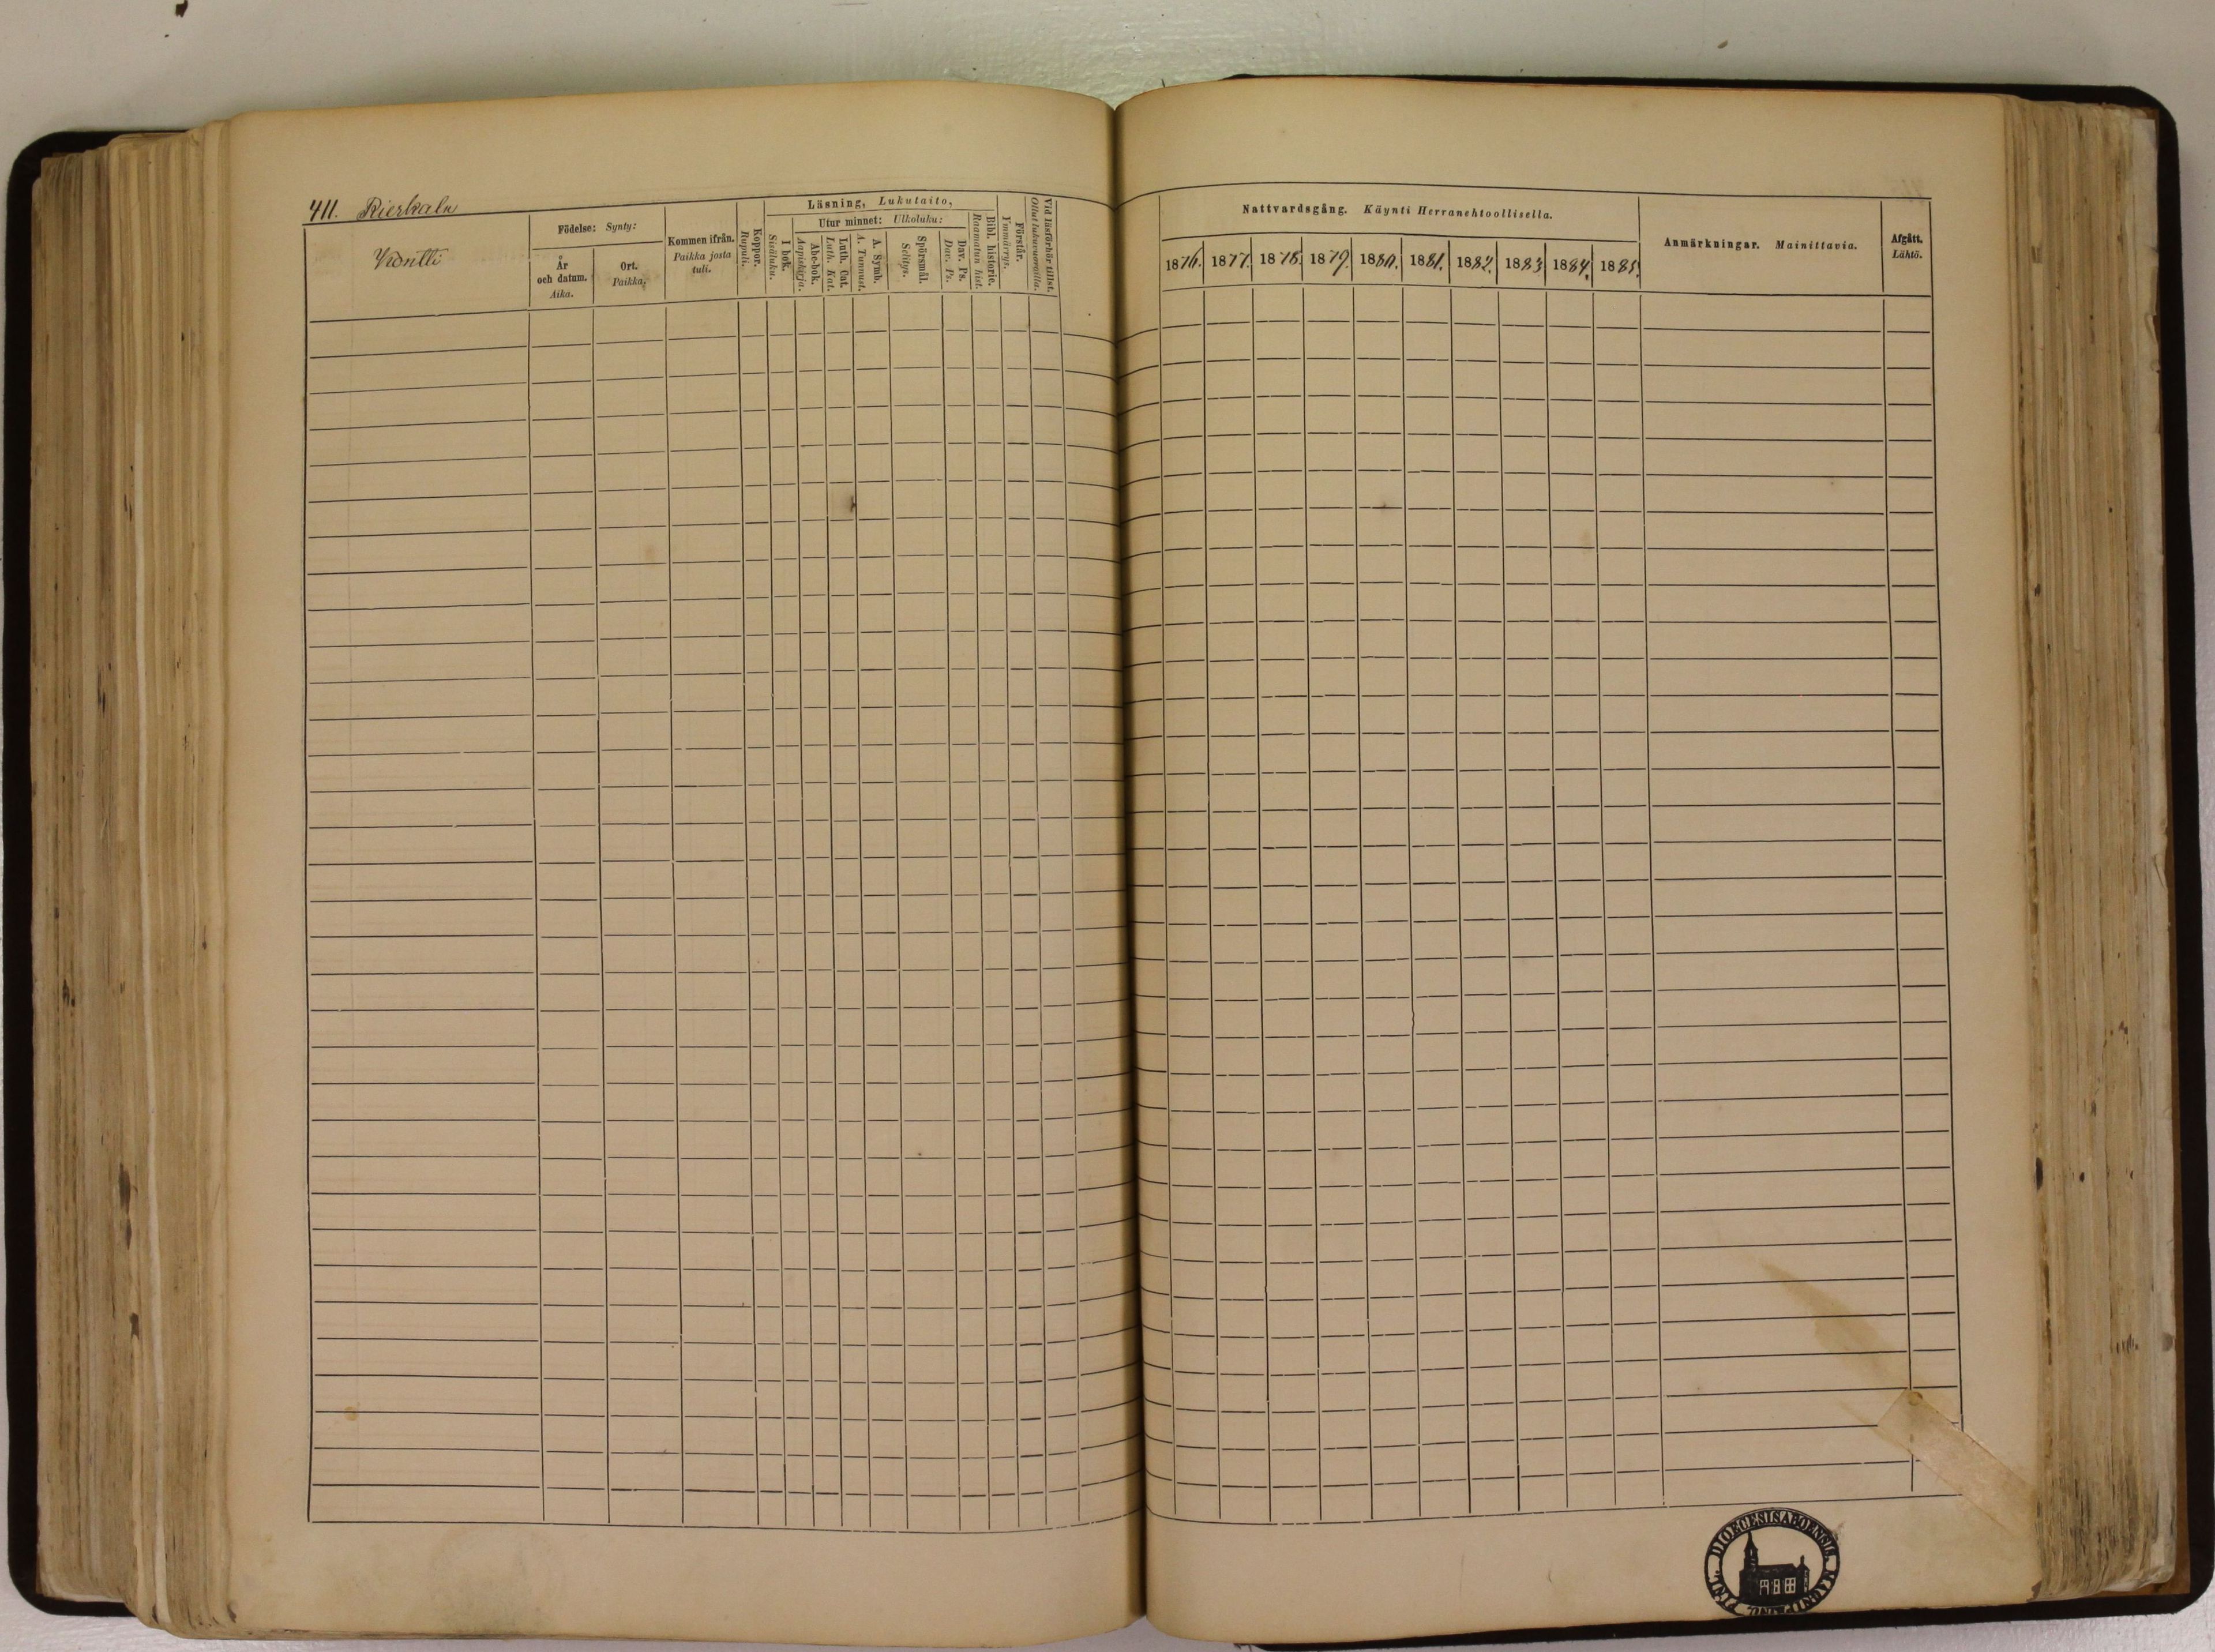 411. Rierkala
Vednlli
Födelse: Synty:
År
och datum.
Aika.
Ort.
Paikka.
Kommen ifrån.
Paikka josta
tuli.
Koppor.
Rupuli.
Läsning, Lukutaito,
I bok.
Sisäluku.
Utur minnet: Ulkoluku:
Abc-bok.
Aapiskirja.
Luth. Cat.
Luth. Kat.
A. Symb.
A. Tunnust.
Spörsmål.
Selitys.
Dav. Ps.
Dav. Ps.
Bibl. historie.
Raamatun hist.
Förstår.
Ymmärrys.
Vid läsförhör tillst.
Ollut lukuvuoroilla.
Nattvardsgång. Käynti Herranehtoollisella.
1876. 1877. 1878. 1879. 1880. 1881. 1882. 1883. 1884. 1885.
Anmärkningar. Mainittavia.
Afgått.
Lähtö.
DIOECESIS ABOENSIS